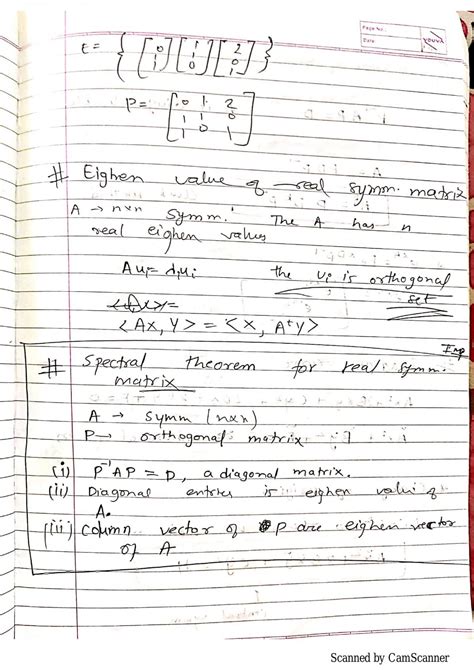 Page No.:
Date
YOUVA
t = { [0 1 1] [1 1 0] [2 0 1] }
P = [0 1 2
1 1 0
1 0 1]
# Eighen value of real symm. matrix
A → n×n symm. The A has n
real eighen values
Aui = diui the ui is orthogonal
set
<Ax, Y> = <x, AᵗY>
Imp
# Spectral theorem for real symm.
matrix
A → symm (n×n)
P → orthogonal matrix
(i) P⁻¹AP = D, a diagonal matrix.
(ii) Diagonal entries is eighen value of
A.
(iii) Column vector of P are eighen vector
of A
Scanned by CamScanner